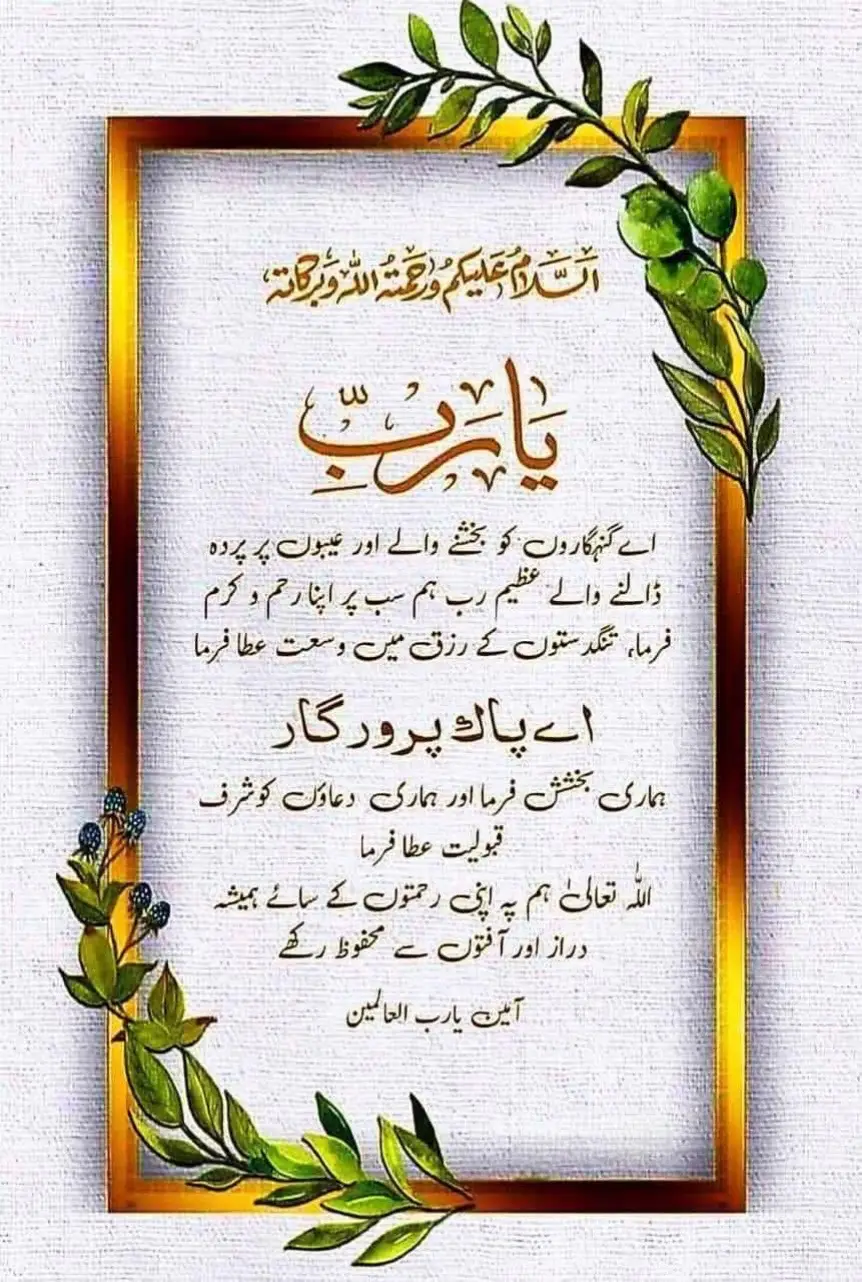 اَلسَّلَامُ عَلَيكُم وَرَحْمَتُہ اللہ وَبَرَكَاتہ
يَا رَبِّ
اے گنہگاروں کو بخشنے والے اور عیبوں پر پردہ
ڈالنے والے عظیم رب ہم سب پر اپنا رحم و کرم
فرما، تنگدستوں کے رزق میں وسعت عطا فرما
اے پاک پرورگار
ہماری بخشش فرما اور ہماری دعاؤں کو شرف
قبولیت عطا فرما
اللہ تعالیٰ ہم پہ اپنی رحمتوں کے سائے ہمیشہ
دراز اور آفتوں سے محفوظ رکھے
آمین یارب العالمین